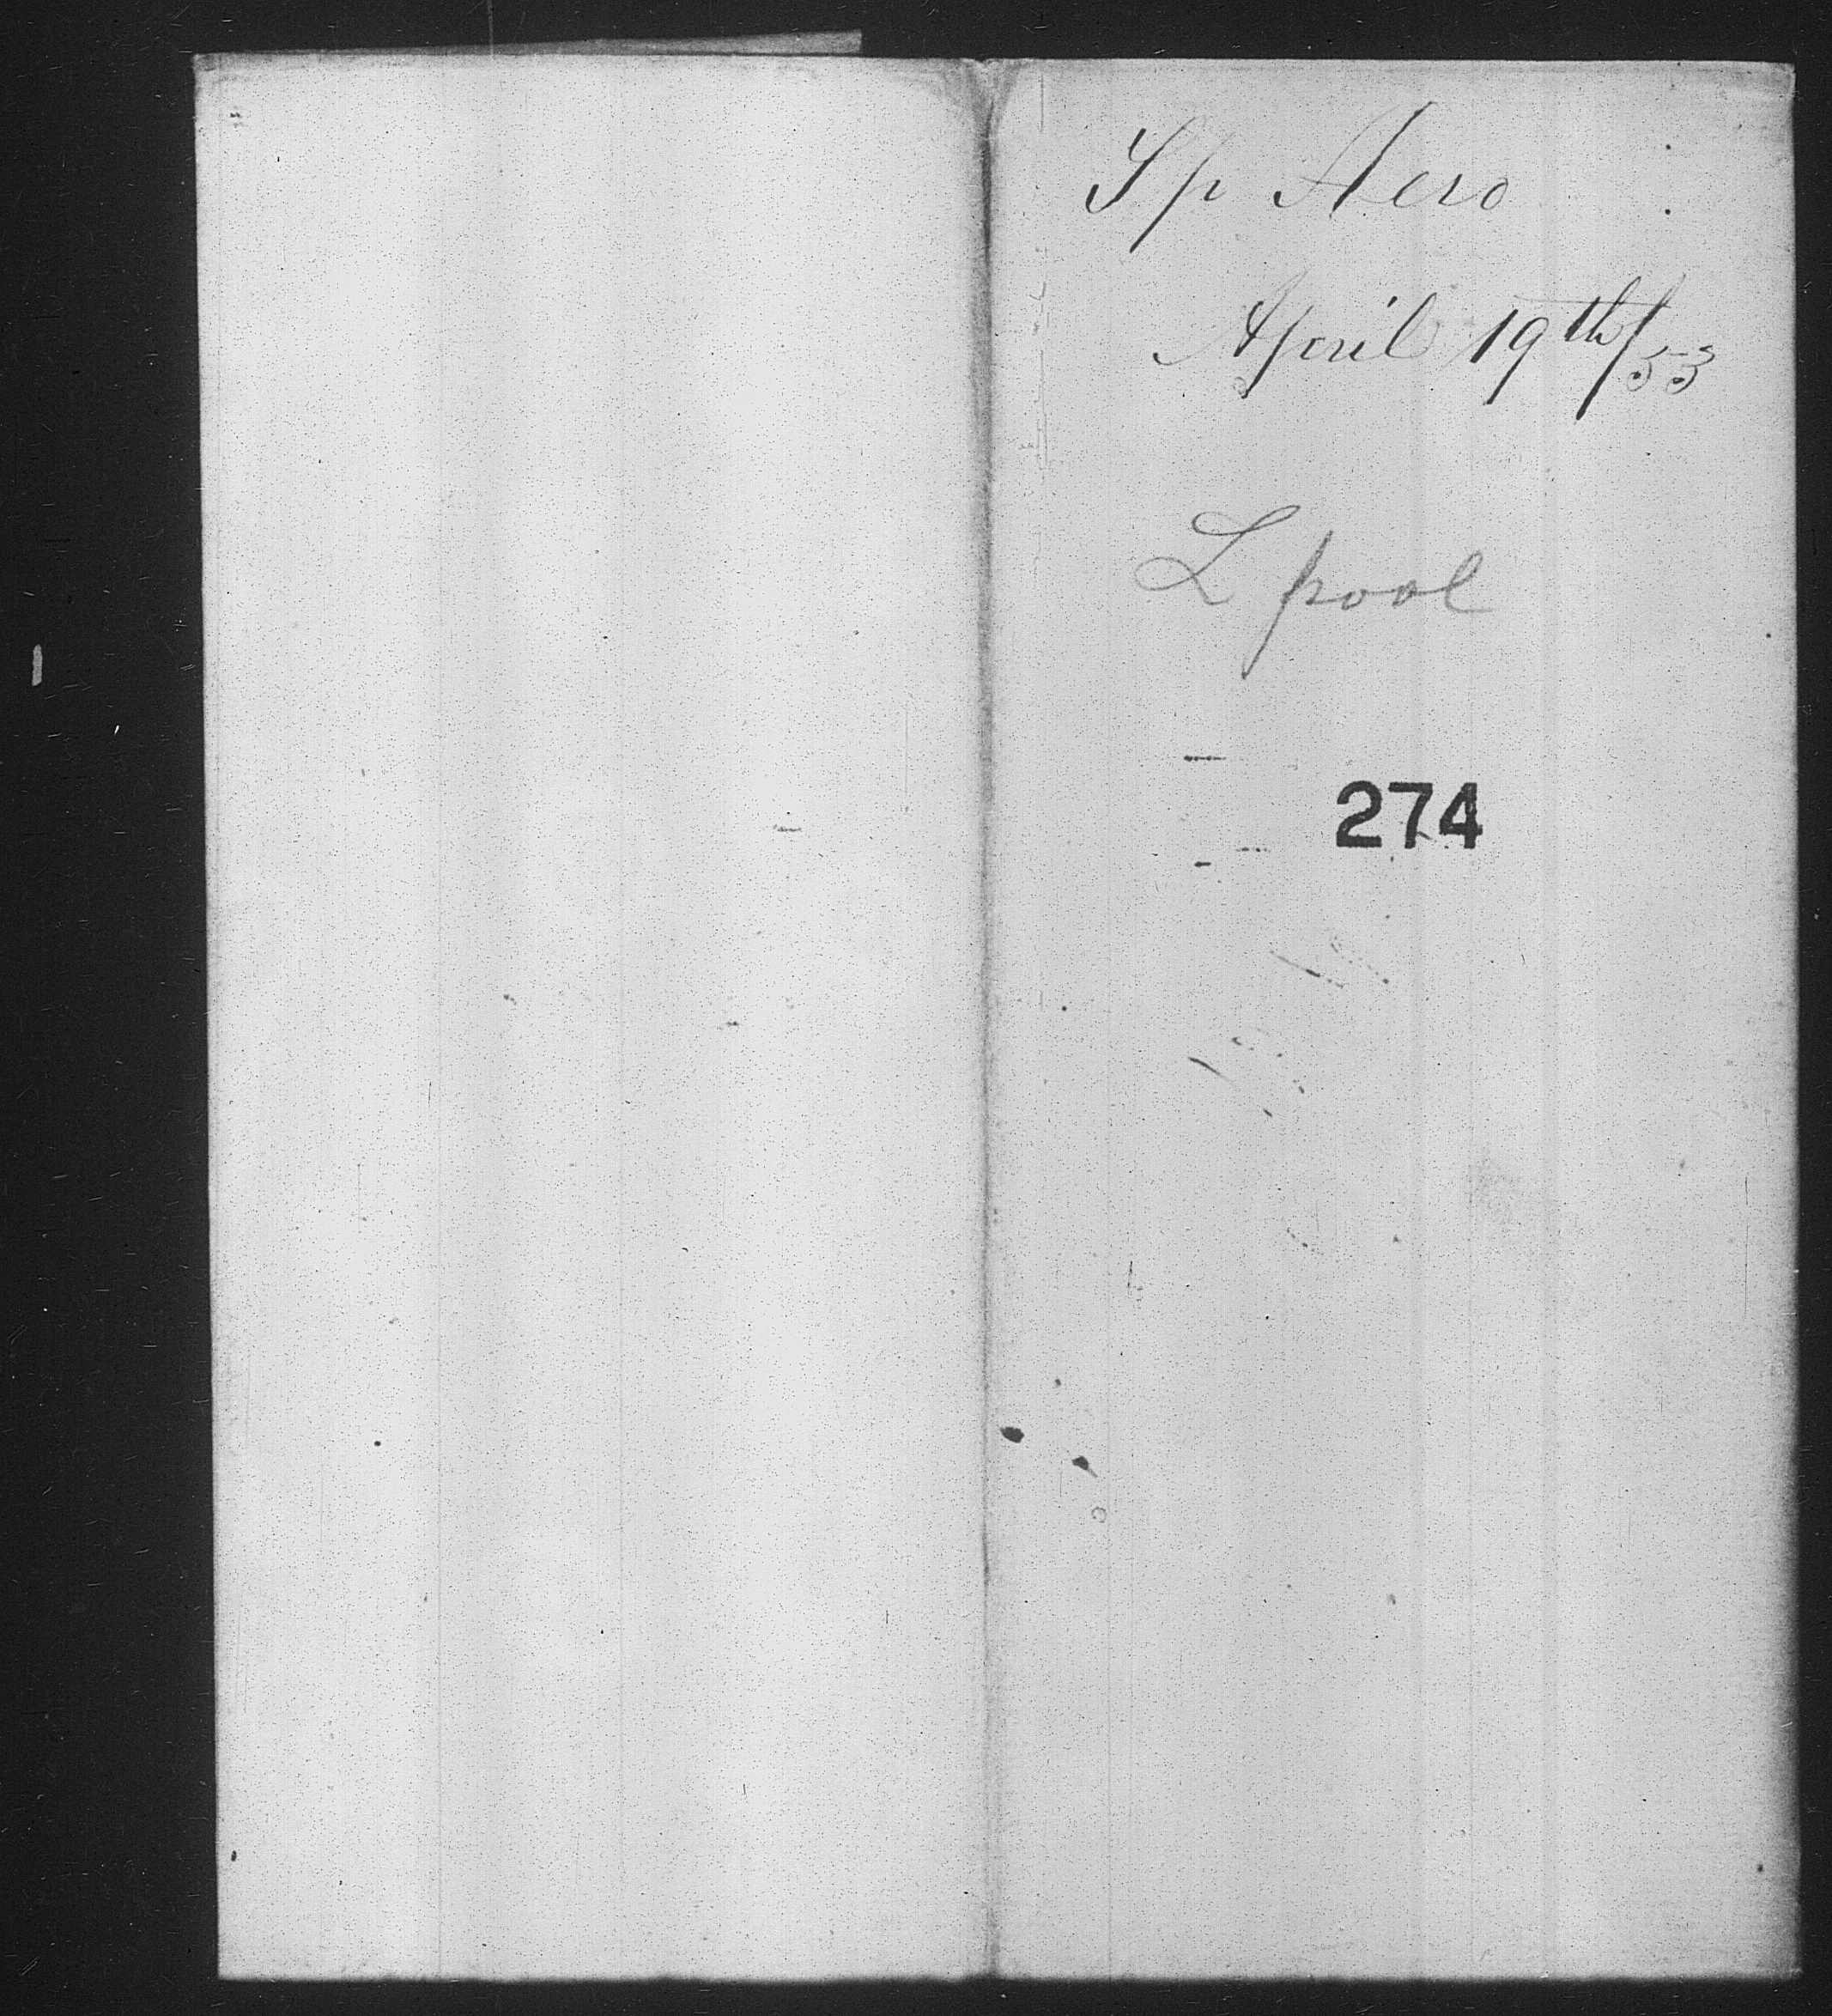 Sp Aero
April 19th/53
L pool
274